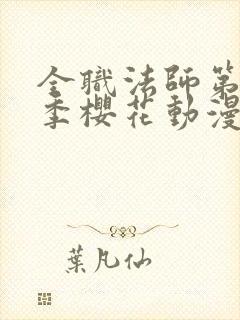 全職法師第
季櫻花動漫
葉凡仙